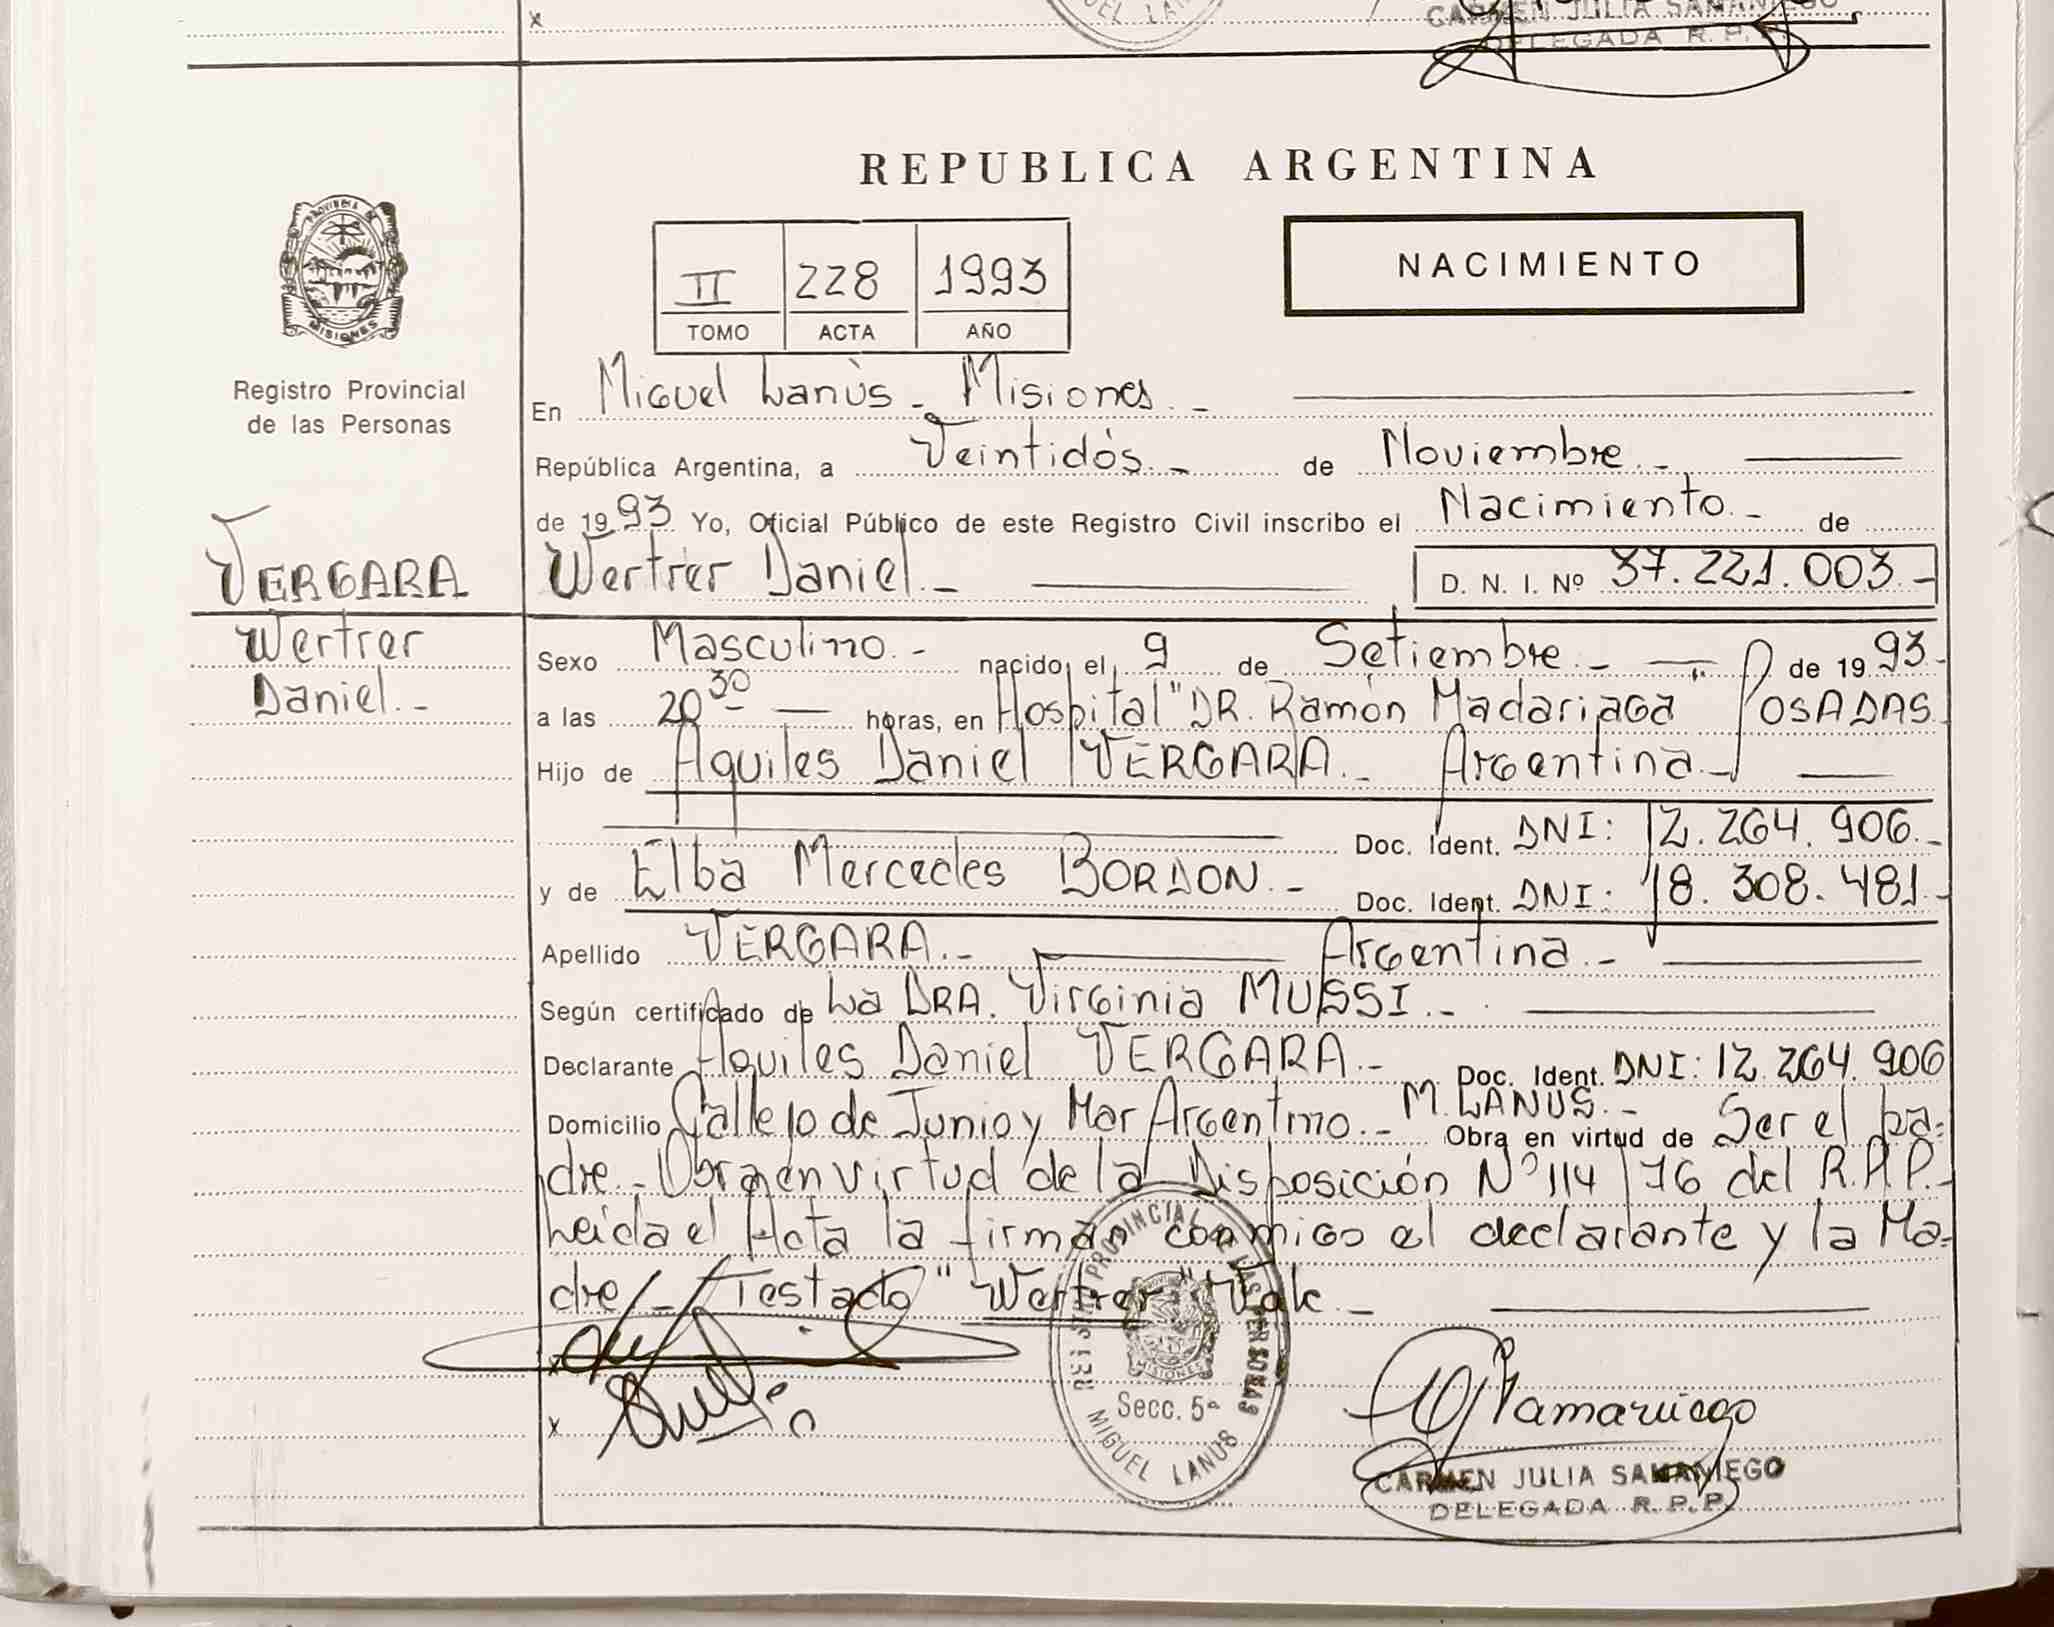 x
CARMEN JULIA SAMANIEGO
DELEGADA R. P. P.
REPUBLICA ARGENTINA
PROVINCIA DE
MISIONES
II 228 1993
TOMO ACTA AÑO
NACIMIENTO
Registro Provincial
de las Personas
En Miguel Lanús - Misiones.-
República Argentina, a Veintidós.- de Noviembre.-
de 1993. Yo, Oficial Público de este Registro Civil inscribo el Nacimiento.- de
VERGARA
Wertrer Daniel.- D. N. I. Nº 37.221.003.-
Wertrer
Daniel.-
Sexo Masculino.- nacido el 9 de Setiembre.- de 1993.-
a las 20 30 horas, en Hospital "DR. Ramón Madariaga" POSADAS.
Hijo de Aquiles Daniel VERGARA.- Argentina.-
Doc. Ident. DNI: 12.264.906.-
y de Elba Mercedes BORDON.- Doc. Ident. DNI: 18.308.481.-
Apellido VERGARA.- Argentina.-
Según certificado de La DRA. Virginia MUSSI.-
Declarante Aquiles Daniel VERGARA.- Doc. Ident. DNI: 12.264.906
Domicilio Calle 10 de Junio y Mar Argentino.- M. LANUS.- Obra en virtud de Ser el pa=
dre.- Obra en virtud de la Disposición Nº 114/76 del R.P.P.-
Leída el Acta la firman conmigo el declarante y la Ma=
dre/- Testado "Wertrer" Vale.-
x
x
REGISTRO PROVINCIAL DE LAS PERSONAS
MISIONES
Secc. 5ª
MIGUEL LANUS
CARMEN JULIA SAMANIEGO
DELEGADA R. P. P.